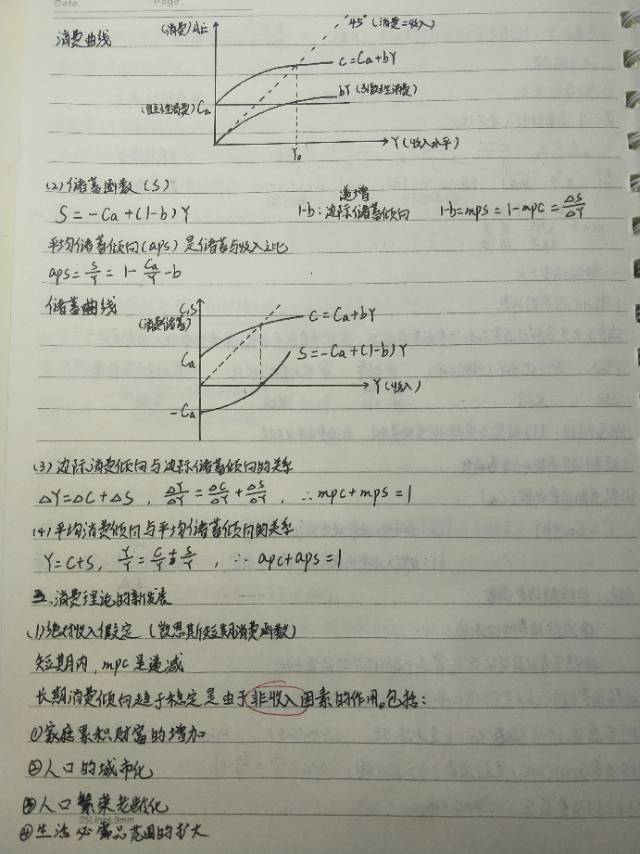 Date. Page.
消费曲线
(消费)AE
45° (消费=收入)
C=Ca+bY
bY (引致性消费)
(自主性消费) Ca
Y(收入水平)
Y0
(2)储蓄函数(S)
S=-Ca+(1-b)Y
递增
1-b:边际储蓄倾向
1-b=mps=1-mpc=ΔS/ΔY
平均储蓄倾向(aps)是储蓄与收入之比
aps=S/Y=1-Ca/Y-b
储蓄曲线
C,S
(消费储蓄)
C=Ca+bY
S=-Ca+(1-b)Y
Ca
Y(收入)
-Ca
(3)边际消费倾向与边际储蓄倾向的关系
ΔY=ΔC+ΔS, ΔY/ΔY=ΔC/ΔY+ΔS/ΔY, ∴mpc+mps=1
(4)平均消费倾向与平均储蓄倾向的关系
Y=C+S, Y/Y=C/Y+S/Y, ∴apc+aps=1
三.消费理论的新发展
(1)绝对收入假定(凯恩斯短期消费函数)
短期内,mpc是递减
长期消费倾向趋于稳定是由于非收入因素的作用。包括:
①家庭累积财富的增加
②人口的城市化
③人口老龄化
25Lines 9mm
④生活必需品范围的扩大